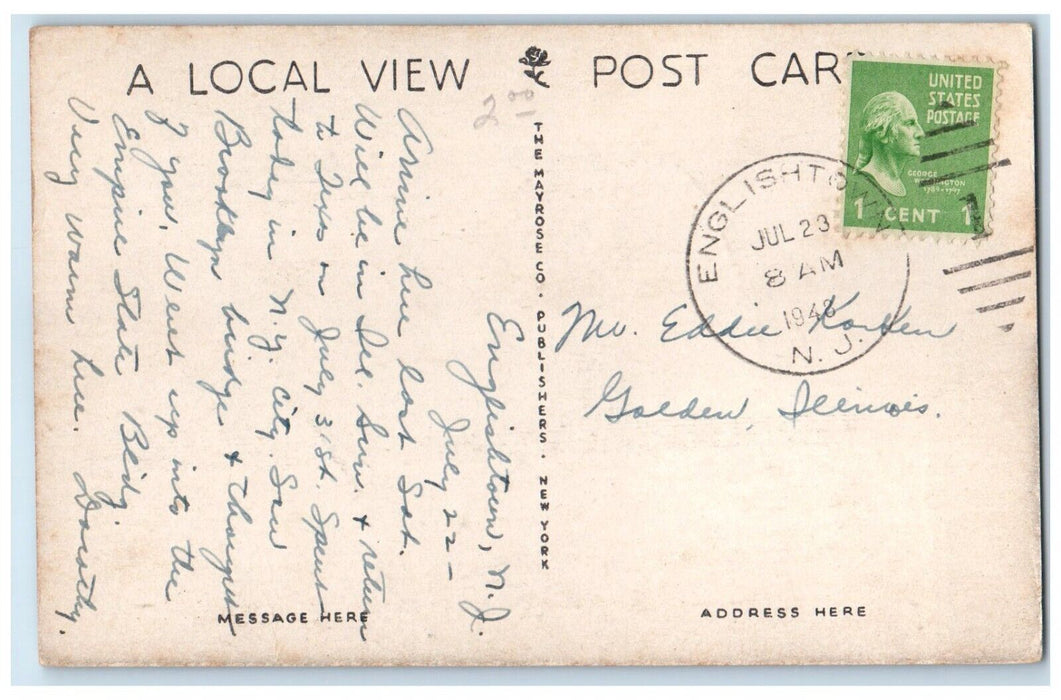 A LOCAL VIEW
POST CARD
2.00
UNITED
STATES
POSTAGE
GEORGE
WASHINGTON
1789-1797
1 CENT 1
ENGLISHTOWN
JUL 23
8 AM
N. J.
THE MAYROSE CO. PUBLISHERS. NEW YORK
Englishtown, N. J.
July 22—
Arrive here last Sat.
Will be in Ill. Sun. & return
to Texas on July 31st. Spent
today in N.Y. City. Saw
Brooklyn bridge & thought
of you. Went up into the
Empire State Bldg.
Very warm here. Dorothy.
Mr. Eddie
Golden, Illinois.
MESSAGE HERE
ADDRESS HERE